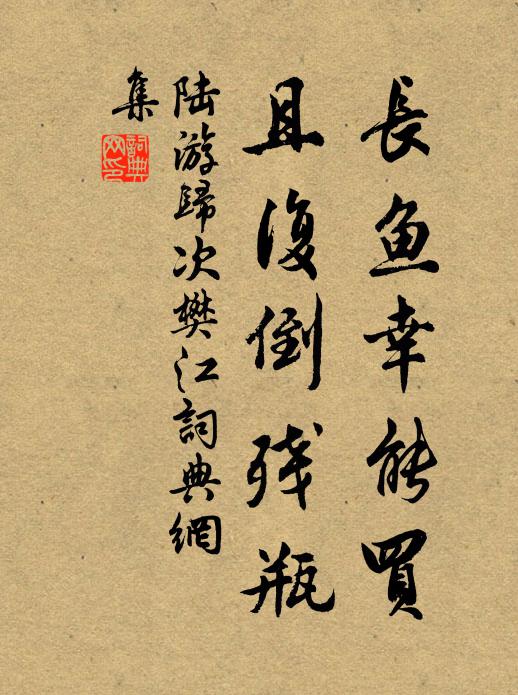 長鱼幸能買
且復倒残瓶
陆游歸次樊江詞典網
集
詞典
网印